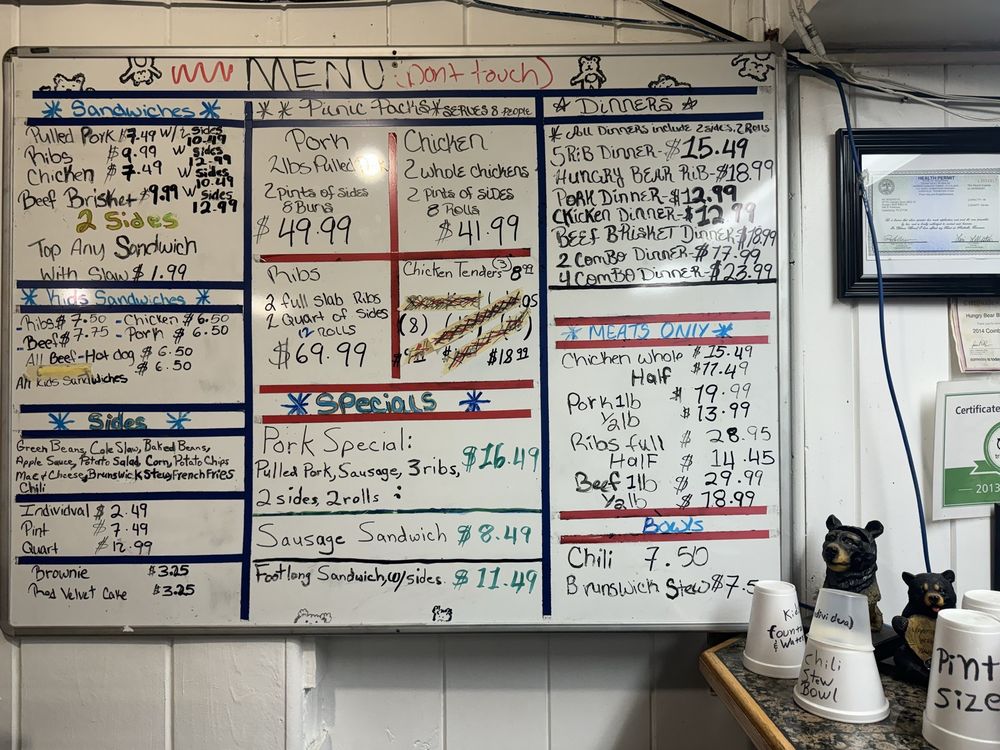 MENU (Don't touch)
Sandwiches
Pulled Pork $7.49 W/2 sides 10.49
Ribs $9.99 w sides 12.99
Chicken $7.49 w sides 10.49
Beef Brisket $9.99 w sides 12.99
2 Sides
Top Any Sandwich
With Slaw $1.99
Kids Sandwiches
Ribs $7.50 - Chicken $6.50
Beef $7.75 - Pork $6.50
All Beef-Hot dog $6.50
$6.50
All Kids Sandwiches
Sides
Green Beans, Cole Slaw, Baked Beans,
Apple Sauce, Potato Salad, Corn, Potato Chips
Mac & Cheese, Brunswick Stew, French Fries
Chili
Individual $2.49
Pint $7.49
Quart $12.99
Brownie $3.25
Red Velvet Cake $3.25
Picnic Packs SERVES 8 PEOPLE
Pork
2lbs Pulled
2 pints of sides
8 Buns
$49.99
Chicken
2 whole chickens
2 pints of sides
8 Rolls
$41.99
Ribs
2 full slab Ribs
2 Quart of sides
12 rolls
$69.99
Chicken Tenders (3) 8.99
(8)
$18.99
Specials
Pork Special:
Pulled Pork, Sausage, 3 ribs, $16.49
2 sides, 2 rolls :
Sausage Sandwich $8.49
Footlong Sandwich, w/ sides. $11.49
DINNERS
* All Dinners include 2 sides, 2 Rolls
5 RiB Dinner- $15.49
HUNGRY BEAR RiB- $18.99
PORK DINNER- $12.99
Chicken Dinner- $12.99
BEEF BRISKET Dinner $18.99
2 ComBo Dinner- $17.99
4 ComBO Dinner- $23.99
MEATS ONLY
Chicken whole $15.49
Half $11.49
Pork 1lb $19.99
1/2lb $13.99
Ribs full $28.95
Half $14.45
Beef 1lb $29.99
1/2lb $18.99
Bowls
Chili 7.50
Brunswick Stew $7.5
HEALTH PERMIT
Hungry Bear B
2014 Coinb
Certificate
2013
Kid
fount
& Water
individual
Chili
Stew
Bowl
Pint
Size